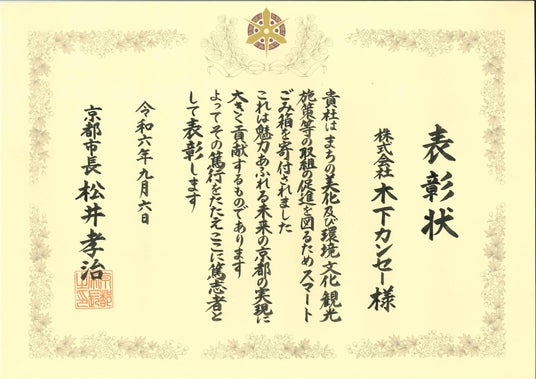 表彰状
株式会社 木下カンセー様
貴社は まちの美化及び環境 文化 観光
施策等の取組の促進を図るため スマート
ごみ箱を寄付されました
これは魅力あふれる未来の京都の実現に
大きく貢献するものであります
よってその篤行をたたえここに篤志者と
して表彰します
令和六年九月六日
京都市長 松井孝治